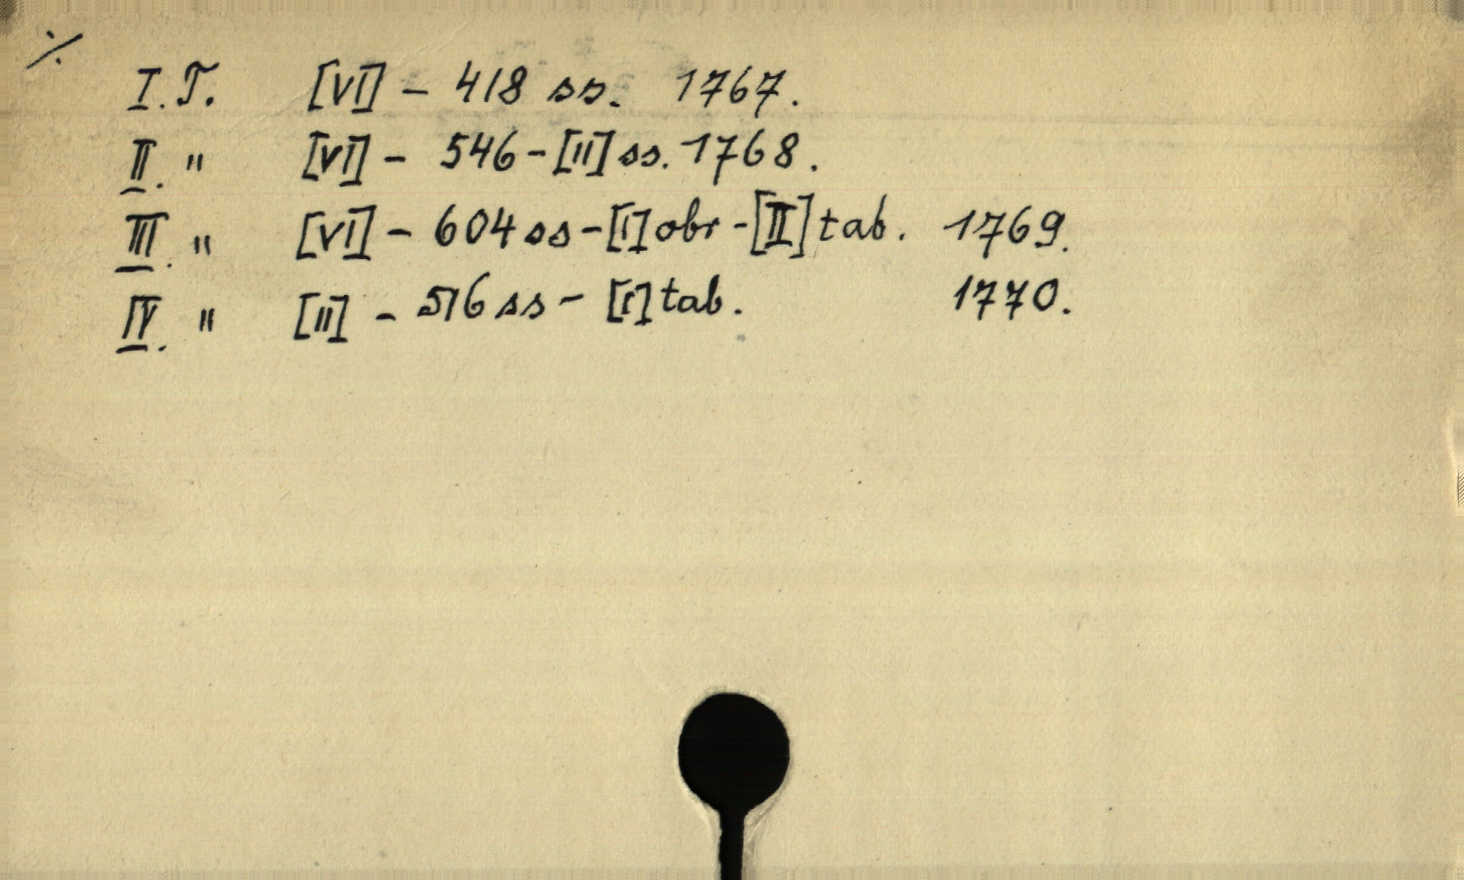 ·/.
I. T. [VI] – 418 ss. 1767.
II. " [VI] – 546 – [II] ss. 1768.
III. " [VI] – 604 ss – [I] obr – [II] tab. 1769.
IV. " [II] – 516 ss – [I] tab. 1770.